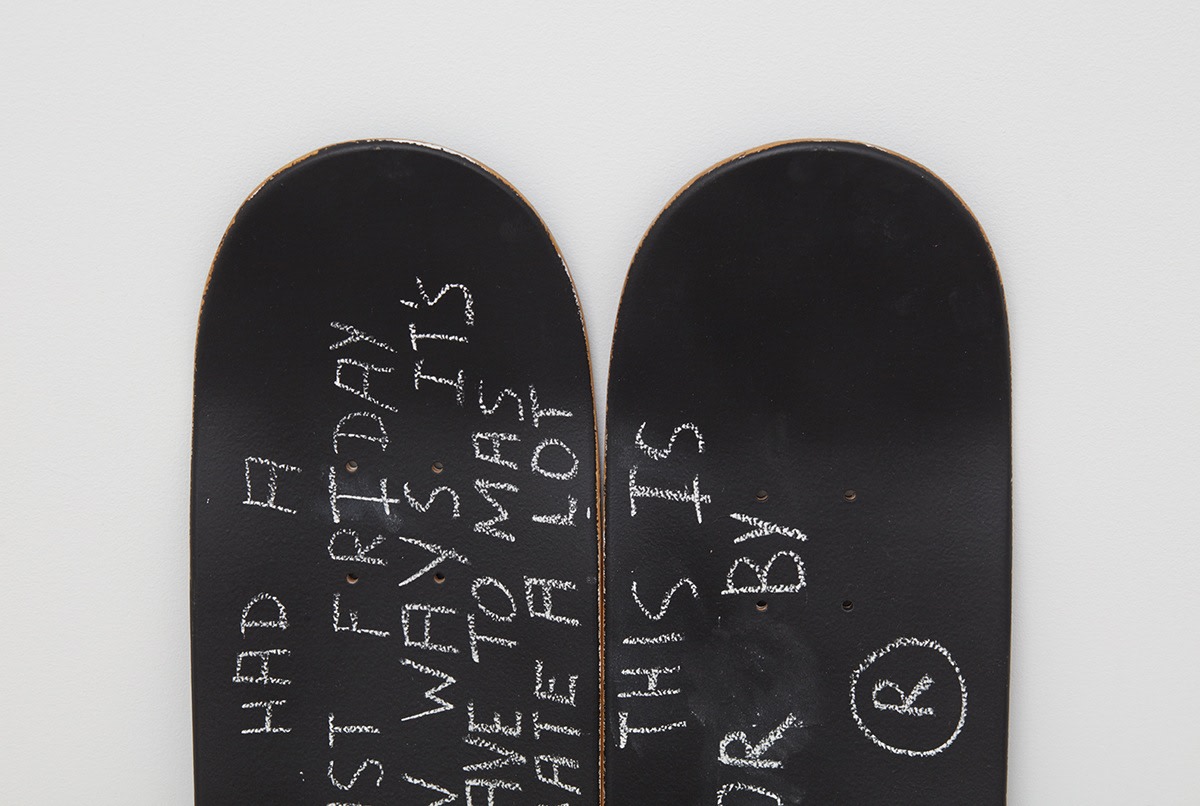 HAD A
ST FRIDAY
WAYS IT'S
AVE TO MAS
ATE A LOT
THIS IS
BY
®